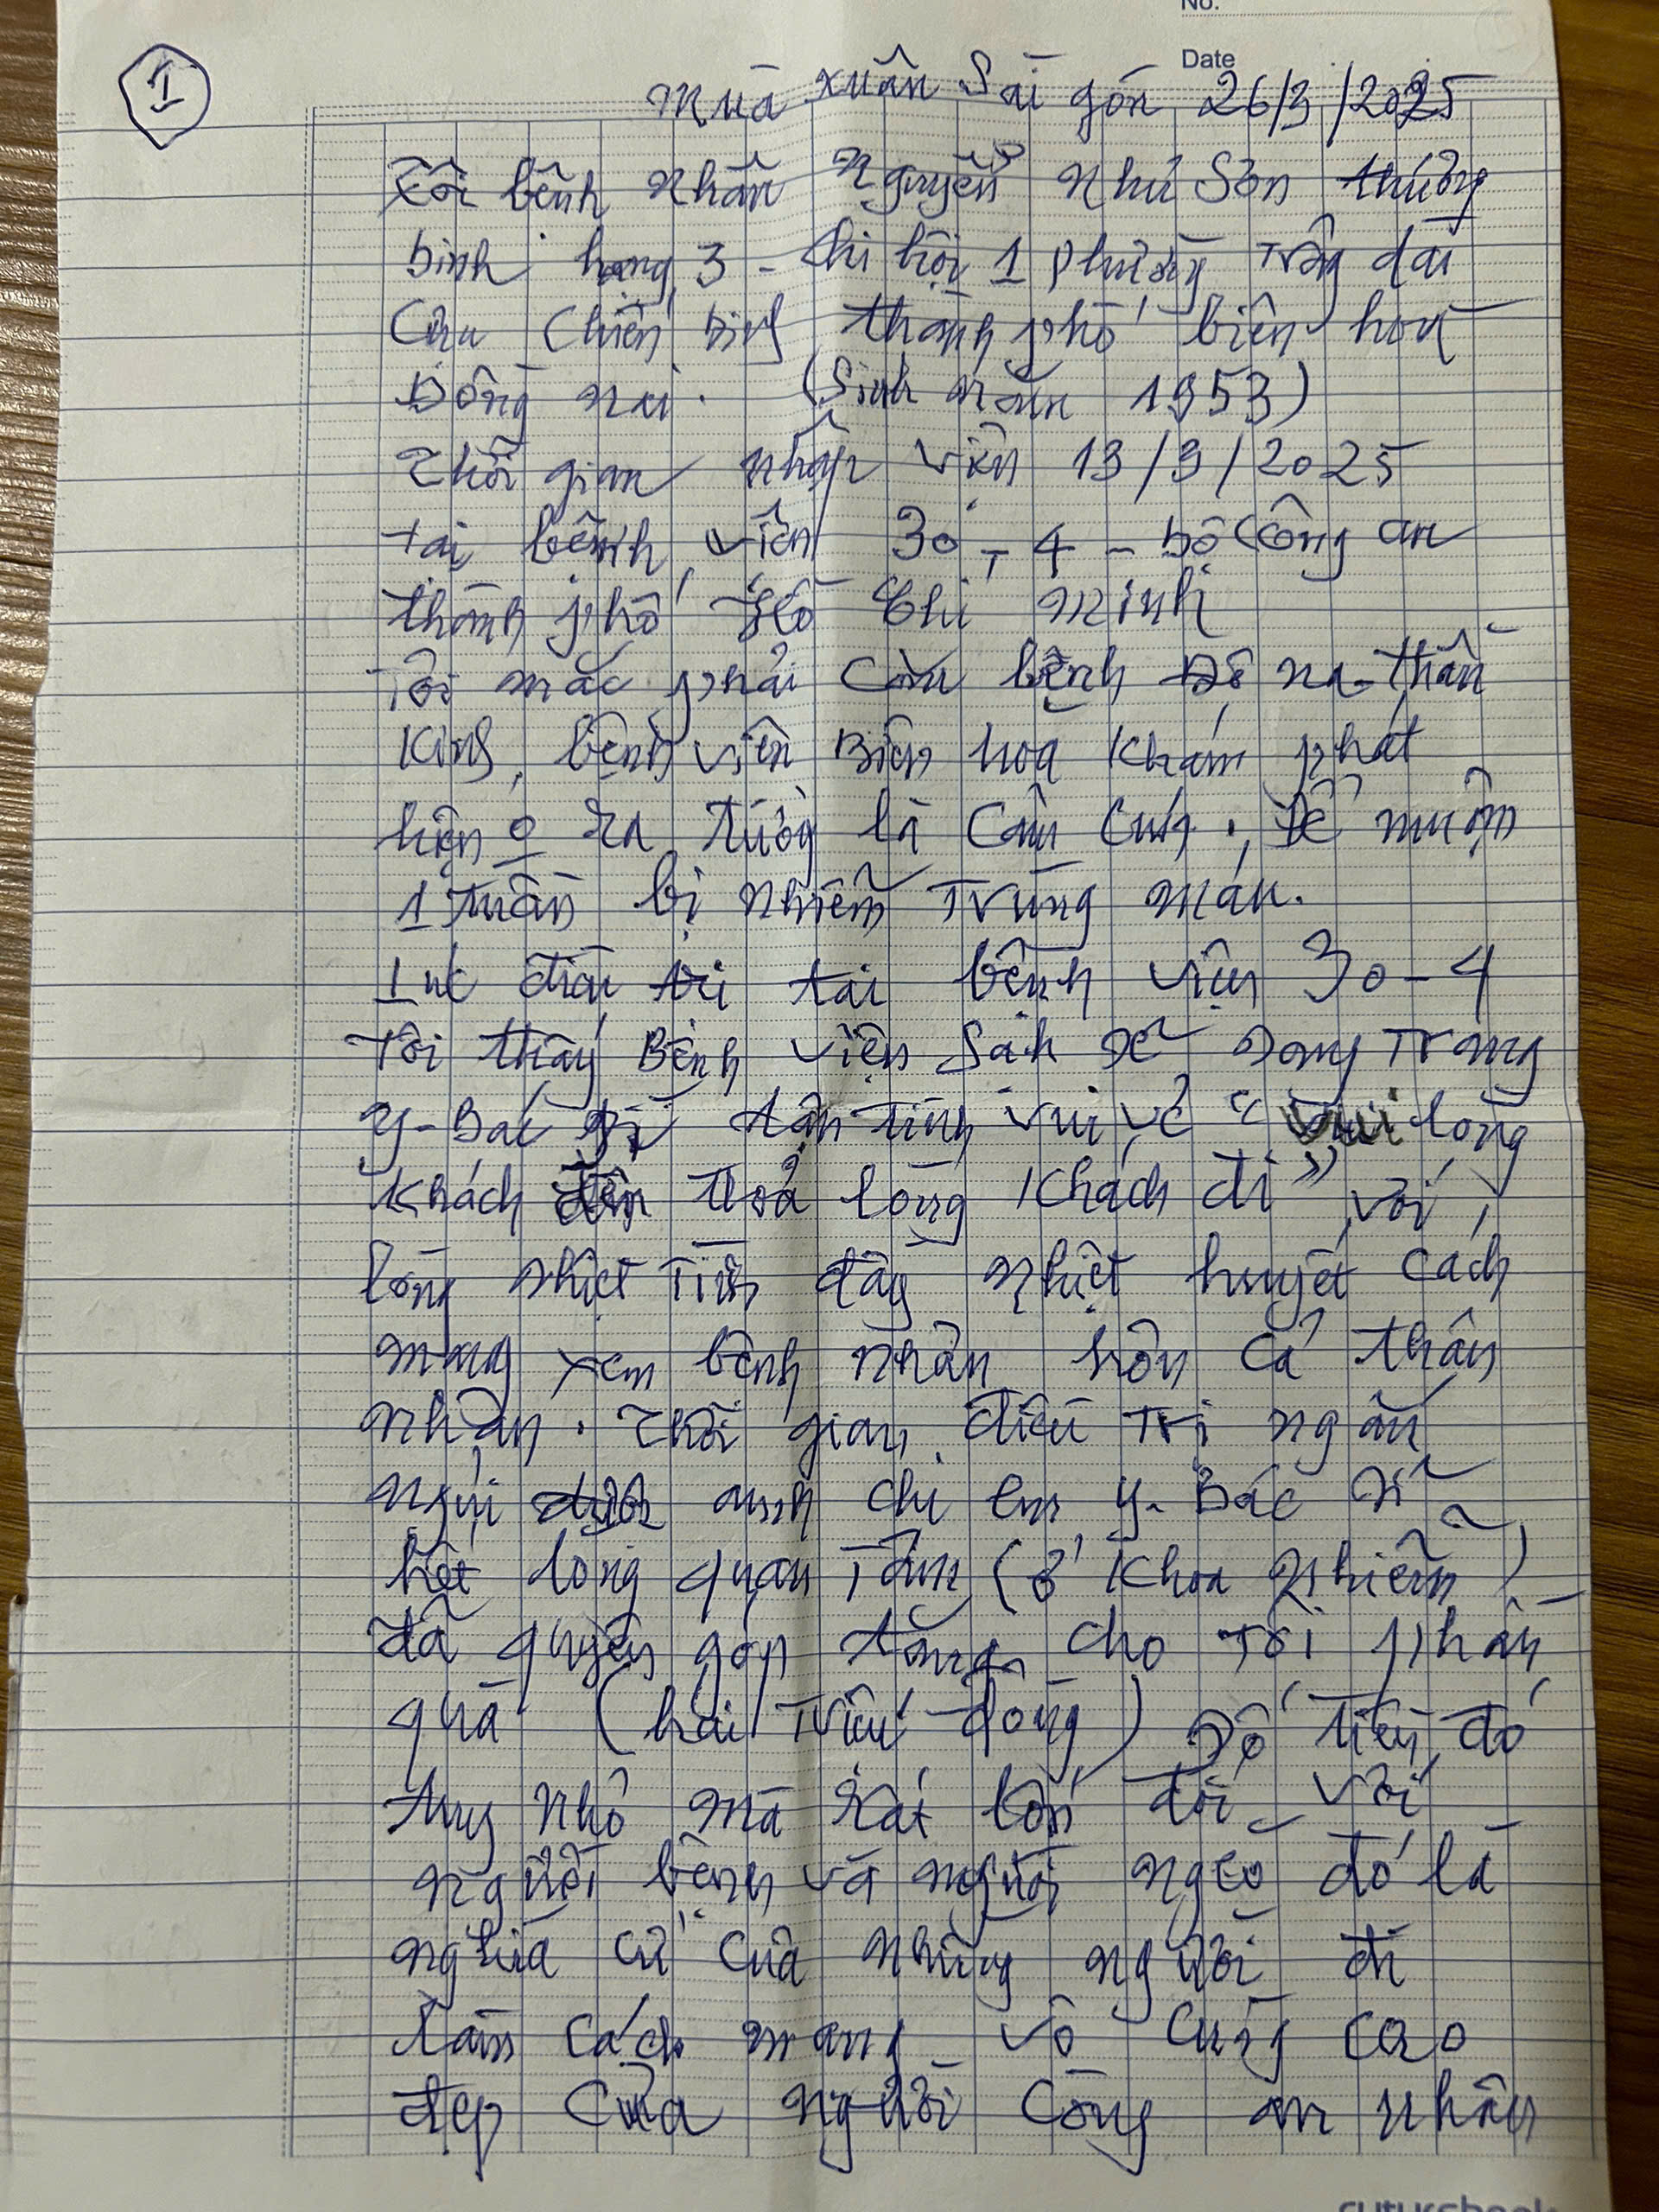 No.
Date
1
Mùa xuân Sài gòn 26/3/2025
Tôi bệnh nhân Nguyễn Như Sơn thương
binh hạng 3 - chi hội 1 phường Trảng dài
Cựu Chiến binh thành phố biên hoà
Đồng nai. (Sinh năm 1953)
Thời gian nhập viện 13/3/2025
tại bệnh viện 30-4-Bộ Công an
thành phố Hồ Chí Minh
Tôi mắc phải căn bệnh Đô na-thần
Kinh, bệnh viện Biên hoà khám phát
hiện ra, tưởng là Cảm Cúm. Để muộn
1 tuần bị nhiễm Trùng máu.
Lúc điều trị tại bệnh viện 30-4
Tôi thấy Bệnh viện Sạch Sẽ Sang Trọng
Y-Bác Sĩ tận tình vui vẻ "Vui lòng
Khách đến thoả lòng Khách đi" với
lòng nhiệt Tình đầy nhiệt huyết Cách
mạng xem bệnh nhân hơn cả thân
nhân. Thời gian điều Trị ngắn
ngủi được anh chị em y-Bác Sĩ
hết lòng quan Tâm (ở Khoa Nhiễm)
đã quyên góp tặng cho Tôi phần
quà (hai Triệu đồng) Số tiền đó
tuy nhỏ mà rất lớn đối với
người bệnh và người ngèo đó là
nghĩa cử của những người đi
làm Cách mạng vô cùng cao
đẹp Của người Công an nhân